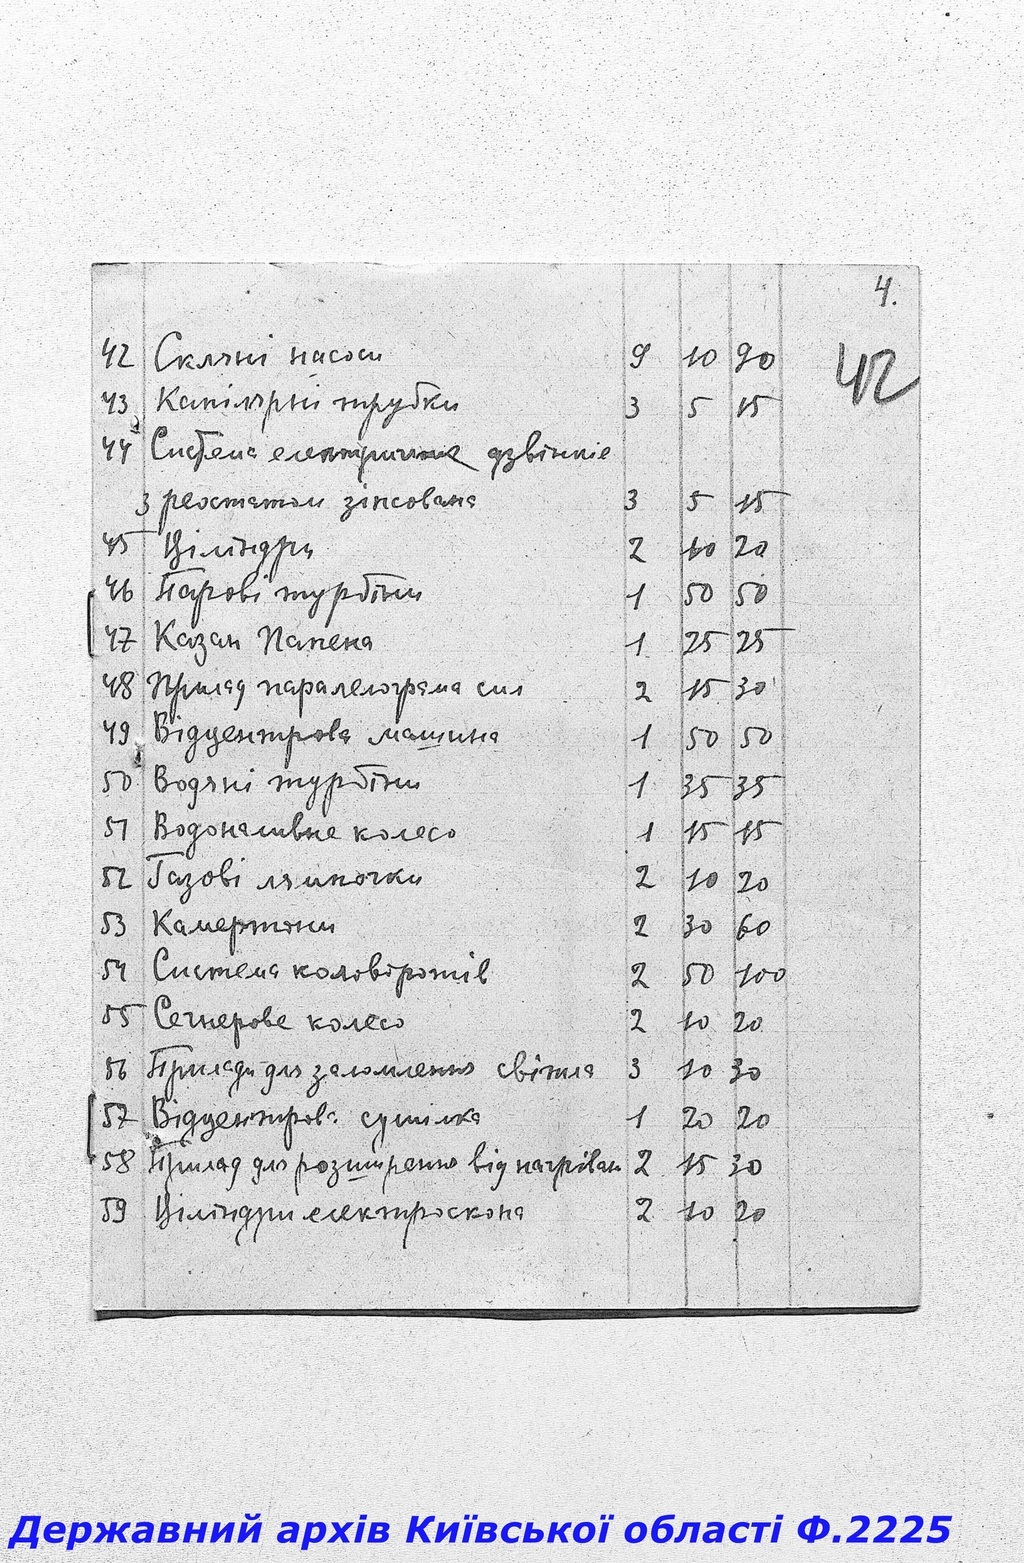 4.
42
42 Скляні насоси 9 10 90
43 Капілярні трубки 3 5 15
44 Система електричних дзвінків
з реостатом зіпсована 3 5 15
45 Ціліндри 2 10 20
46 Парові турбіни 1 50 50
47 Казан Папена 1 25 25
48 Прилад паралелограма сил 2 15 30
49 Відцентрова машина 1 50 50
50 Водяні турбіни 1 35 35
51 Водоналивне колесо 1 15 15
52 Газові лямпочки 2 10 20
53 Камертони 2 30 60
54 Система коловоротів 2 50 100
55 Сегнерове колесо 2 10 20
56 Прилади для заломлення світла 3 10 30
57 Відцентрова сушілка 1 20 20
58 Прилад для розширення від нагріван 2 15 30
59 Ціліндри електроскопа 2 10 20
Державний архів Київської області Ф.2225